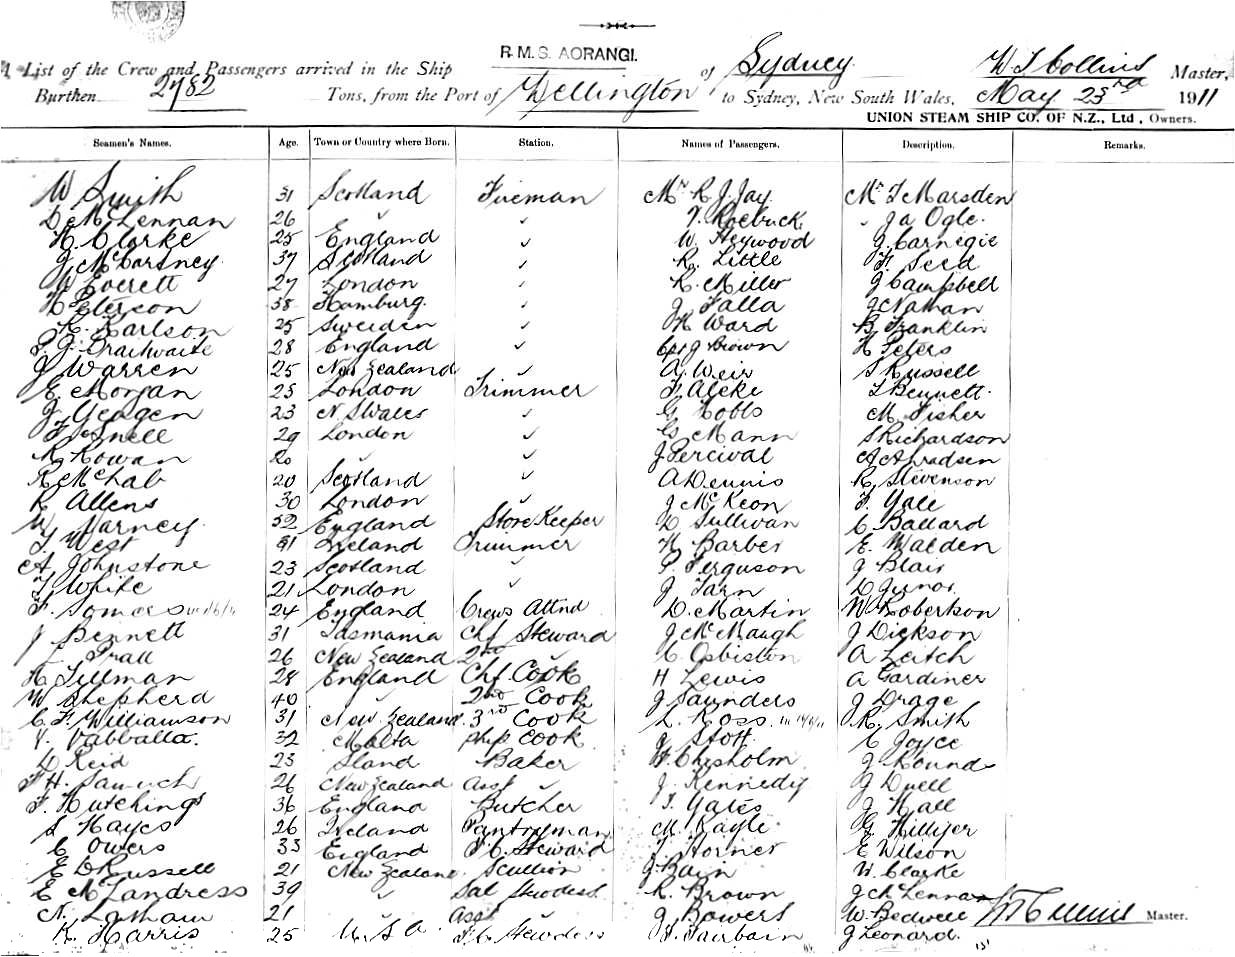 R.M.S. AORANGI.
A List of the Crew and Passengers arrived in the Ship of Sydney W J Collins Master,
Burthen 2782 Tons, from the Port of Wellington to Sydney, New South Wales, May 23rd 1911
UNION STEAM SHIP CO. OF N.Z., Ltd, Owners.
Seamen's Names. Age. Town or Country where Born. Station. Names of Passengers. Description. Remarks.
W Smith 31 Scotland Fireman Mr R J Jay Mr F Marsden
D McLennan 26 " ✓ V. Roebuck " J A Ogle
H. Clarke 25 England ✓ W. Heywood J. Carnegie
J McCartney 37 Scotland ✓ R. Little F. Seed
W Everett 27 London ✓ R. Miller J Campbell
H Peterson 38 Hamburg ✓ J Falla J Nathan
K. Karlson 25 Sweden ✓ H Ward B Franklin
J. Braithwaite 28 England ✓ Capt J Brown H Peters
J Warren 25 New Zealand ✓ A Weir S Russell
E Morgan 25 London Trimmer F. Aleke L Bennett
J Yeagen 23 N S Wales ✓ G Hobbs M Fisher
F Snell 29 London ✓ G Mann S Richardson
R Rowan 20 " ✓ J Percival
R McNab 20 Scotland ✓ A Dennis R. Stevenson
R Allens 30 London ✓ J McKeon F. Yale
W Varney 52 England Store Keeper D Sullivan C Ballard
T West 41 Ireland Trimmer H Barber E. Walden
A Johnstone 23 Scotland ✓ P. Ferguson J Blair
T White 21 London ✓ J Tarn D Junor
F. Somers 24 England Crews Attnd D. Martin W Robertson
J Bennett 31 Tasmania Chf Steward J McMaugh J Dickson
Pratt 26 New Zealand 2nd ✓ C. Osbiston A Leitch
H Tillman 28 England Chf Cook H Lewis A Gardiner
W Shepherd 40 " 2nd Cook J Saunders J Drage
C F Williamson 31 New Zealand 3rd Cook L. Ross R. Smith
V. Vabbalta. 32 Malta Ships Cook J Stott C Joyce
D Reid 23 Baker W Chisholm J Round
F H. 26 New Zealand Asst ✓ J. Kennedy J Duell
F. Hutchings 36 England Butcher T Yates J Hall
S Hayes 26 Ireland Pantryman M Kayle J Hillyer
C Owers 33 England F.C. Steward T Horner E Wilson
E D Russell 21 New Zealand Scullion J. Bain W. Clarke
E McLandress 39 " Sal Stewdess R. Brown J McLennan
N. Latham 21 Asst ✓ J Bowers W Bedwell W J Collins Master.
K. Harris 25 U.S.A. F.C. Stewdess W. Fairbairn J Leonard.
151